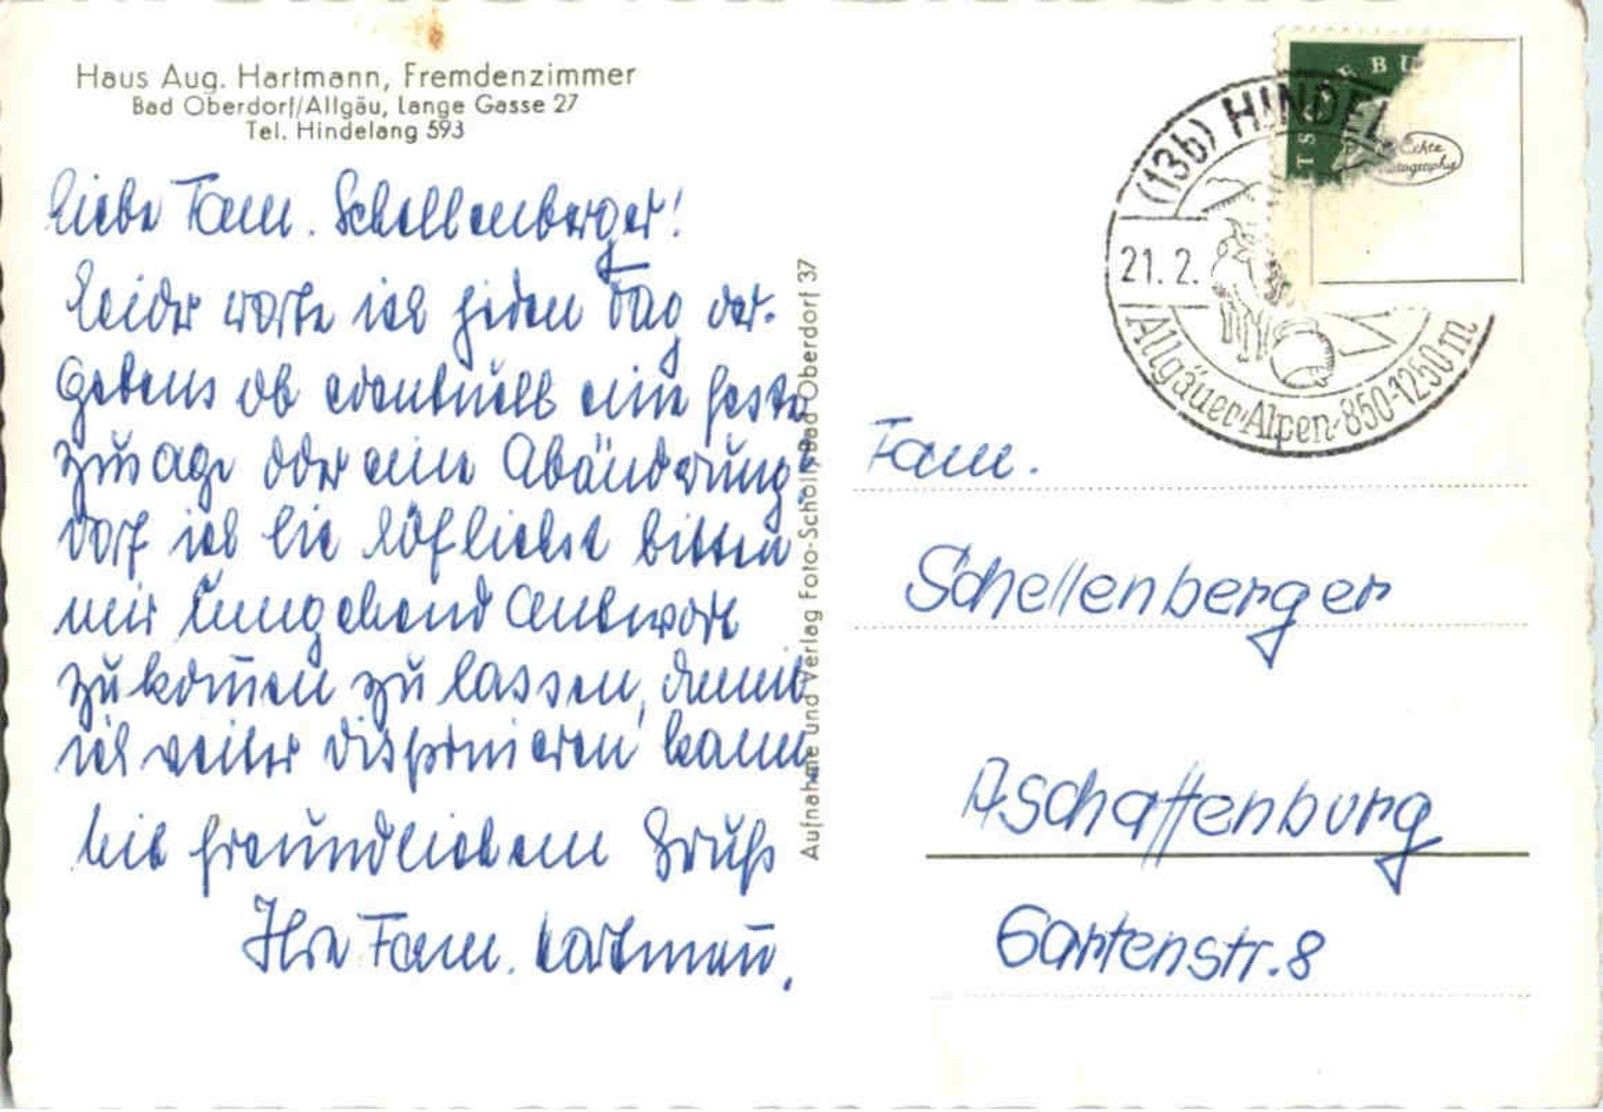 Haus Aug. Hartmann, Fremdenzimmer
Bad Oberdorf/Allgäu, Lange Gasse 27
Tel. Hindelang 593
Liebe Fam. Schellenberger!
Leider warte ich jeden Tag ver-
gebens ob eventuell eine feste
zusage oder eine Abänderung.
darf ich Sie höflichst bitten
mir umgehend Antwort
zukommen zu lassen, damit
ich weiter disponieren kann
Mit freundlichem Gruß
Ihre Fam. Hartmann.
Aufnahme und Verlag Foto-Scholl, Bad Oberdorf 37
(13b) HINDEL
21. 2.
Allgäuer-Alpen-850-1250m
TSCHE BU
Echte
Fotographie
Fam.
Schellenberger
Aschaffenburg
Gartenstr. 8